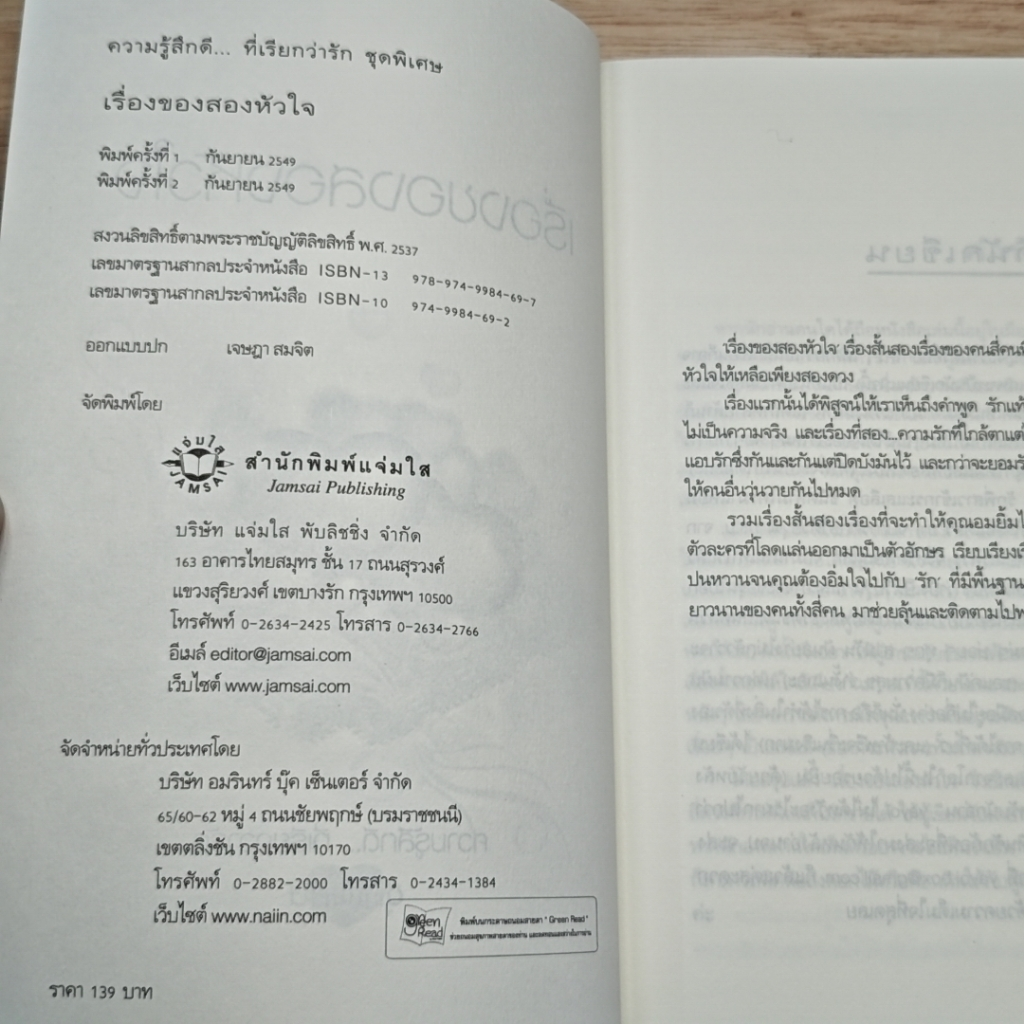 ความรู้สึกดี... ที่เรียกว่ารัก ชุดพิเศษ
เรื่องของสองหัวใจ
พิมพ์ครั้งที่ 1 กันยายน 2549
พิมพ์ครั้งที่ 2 กันยายน 2549
สงวนลิขสิทธิ์ตามพระราชบัญญัติลิขสิทธิ์ พ.ศ. 2537
เลขมาตรฐานสากลประจำหนังสือ ISBN-13 978-974-9984-69-7
เลขมาตรฐานสากลประจำหนังสือ ISBN-10 974-9984-69-2
ออกแบบปก เจษฎา สมจิต
จัดพิมพ์โดย
แจ่มใส
JAMSAI
สำนักพิมพ์แจ่มใส
Jamsai Publishing
บริษัท แจ่มใส พับลิชชิ่ง จำกัด
163 อาคารไทยสมุทร ชั้น 17 ถนนสุรวงศ์
แขวงสุริยวงศ์ เขตบางรัก กรุงเทพฯ 10500
โทรศัพท์ 0-2634-2425 โทรสาร 0-2634-2766
อีเมล์ editor@jamsai.com
เว็บไซต์ www.jamsai.com
จัดจำหน่ายทั่วประเทศโดย
บริษัท อมรินทร์ บุ๊ค เซ็นเตอร์ จำกัด
65/60-62 หมู่ 4 ถนนชัยพฤกษ์ (บรมราชชนนี)
เขตตลิ่งชัน กรุงเทพฯ 10170
โทรศัพท์ 0-2882-2000 โทรสาร 0-2434-1384
เว็บไซต์ www.naiin.com
Green Read
พิมพ์บนกระดาษถนอมสายตา "Green Read"
ราคา 139 บาท
'เรื่องของสองหัวใจ' เรื่องสั้นสองเรื่องของคนสี่คน
หัวใจให้เหลือเพียงสองดวง
เรื่องแรกนั้นได้พิสูจน์ให้เราเห็นถึงคำพูด 'รักแท้
ไม่เป็นความจริง และเรื่องที่สอง...ความรักที่ใกล้ตาแต่
แอบรักซึ่งกันและกันแต่ปิดบังมันไว้ และกว่าจะยอม
ให้คนอื่นวุ่นวายกันไปหมด
รวมเรื่องสั้นสองเรื่องที่จะทำให้คุณอมยิ้ม
ตัวละครที่โลดแล่นออกมาเป็นตัวอักษร เรียบเรียง
ปนหวานจนคุณต้องอิ่มใจไปกับ 'รัก' ที่มีพื้นฐาน
ยาวนานของคนทั้งสี่คน มาช่วยลุ้นและติดตามไป